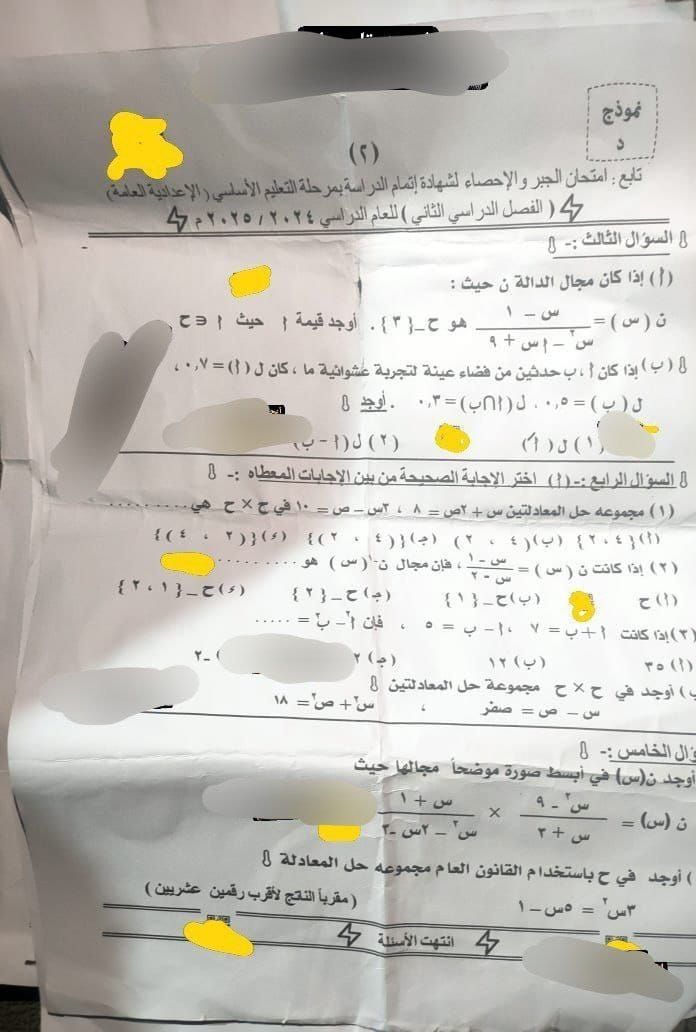 نموذج
د
(٢)
تابع : امتحان الجبر والإحصاء لشهادة إتمام الدراسة بمرحلة التعليم الأساسي ( الإعدادية العامة )
( الفصل الدراسي الثاني ) للعام الدراسي ٢٠٢٤ / ٢٠٢٥ م
السؤال الثالث :-
(أ) إذا كان مجال الدالة ن حيث :
ن (س) = (س - ١) / (س٢ - أس + ٩) هو ح - {٣} . أوجد قيمة أ حيث أ ∈ ح
(ب) إذا كان أ ، ب حدثين من فضاء عينة لتجربة عشوائية ما ، كان ل (أ) = ٠,٧ ،
ل (ب) = ٠,٥ ، ل (أ∩ب) = ٠,٣ . أوجد
(١) ل (أ) (٢) ل (أ - ب)
السؤال الرابع :- (أ) اختر الإجابة الصحيحة من بين الإجابات المعطاه :-
(١) مجموعه حل المعادلتين س + ٢ص = ٨ ، ٢س - ص = ١٠ في ح × ح هي ..........
(أ) {٤ ، ٢} (ب) (٤ ، ٢) (ج) {(٤ ، ٢)} (ء) {(٢ ، ٤)}
(٢) إذا كانت ن (س) = (س - ١) / (س - ٢) ، فإن مجال ن-١ (س) هو ..........
(أ) ح (ب) ح - {١} (ج) ح - {٢} (ء) ح - {١ ، ٢}
(٣) إذا كانت أ + ب = ٧ ، أ - ب = ٥ ، فإن أ٢ - ب٢ = .....
(أ) ٣٥ (ب) ١٢ (ج) ٢ -٢
) أوجد في ح × ح مجموعة حل المعادلتين
س - ص = صفر ، س٢ + ص٢ = ١٨
ؤال الخامس :-
أوجد ن(س) في أبسط صورة موضحاً مجالها حيث
ن (س) = (س٢ - ٩) / (س + ٢) × (س + ١) / (س٢ - ٢س - ٣)
) أوجد في ح باستخدام القانون العام مجموعه حل المعادلة
٣س٢ = ٥س - ١ ( مقرباً الناتج لأقرب رقمين عشريين )
انتهت الأسئلة